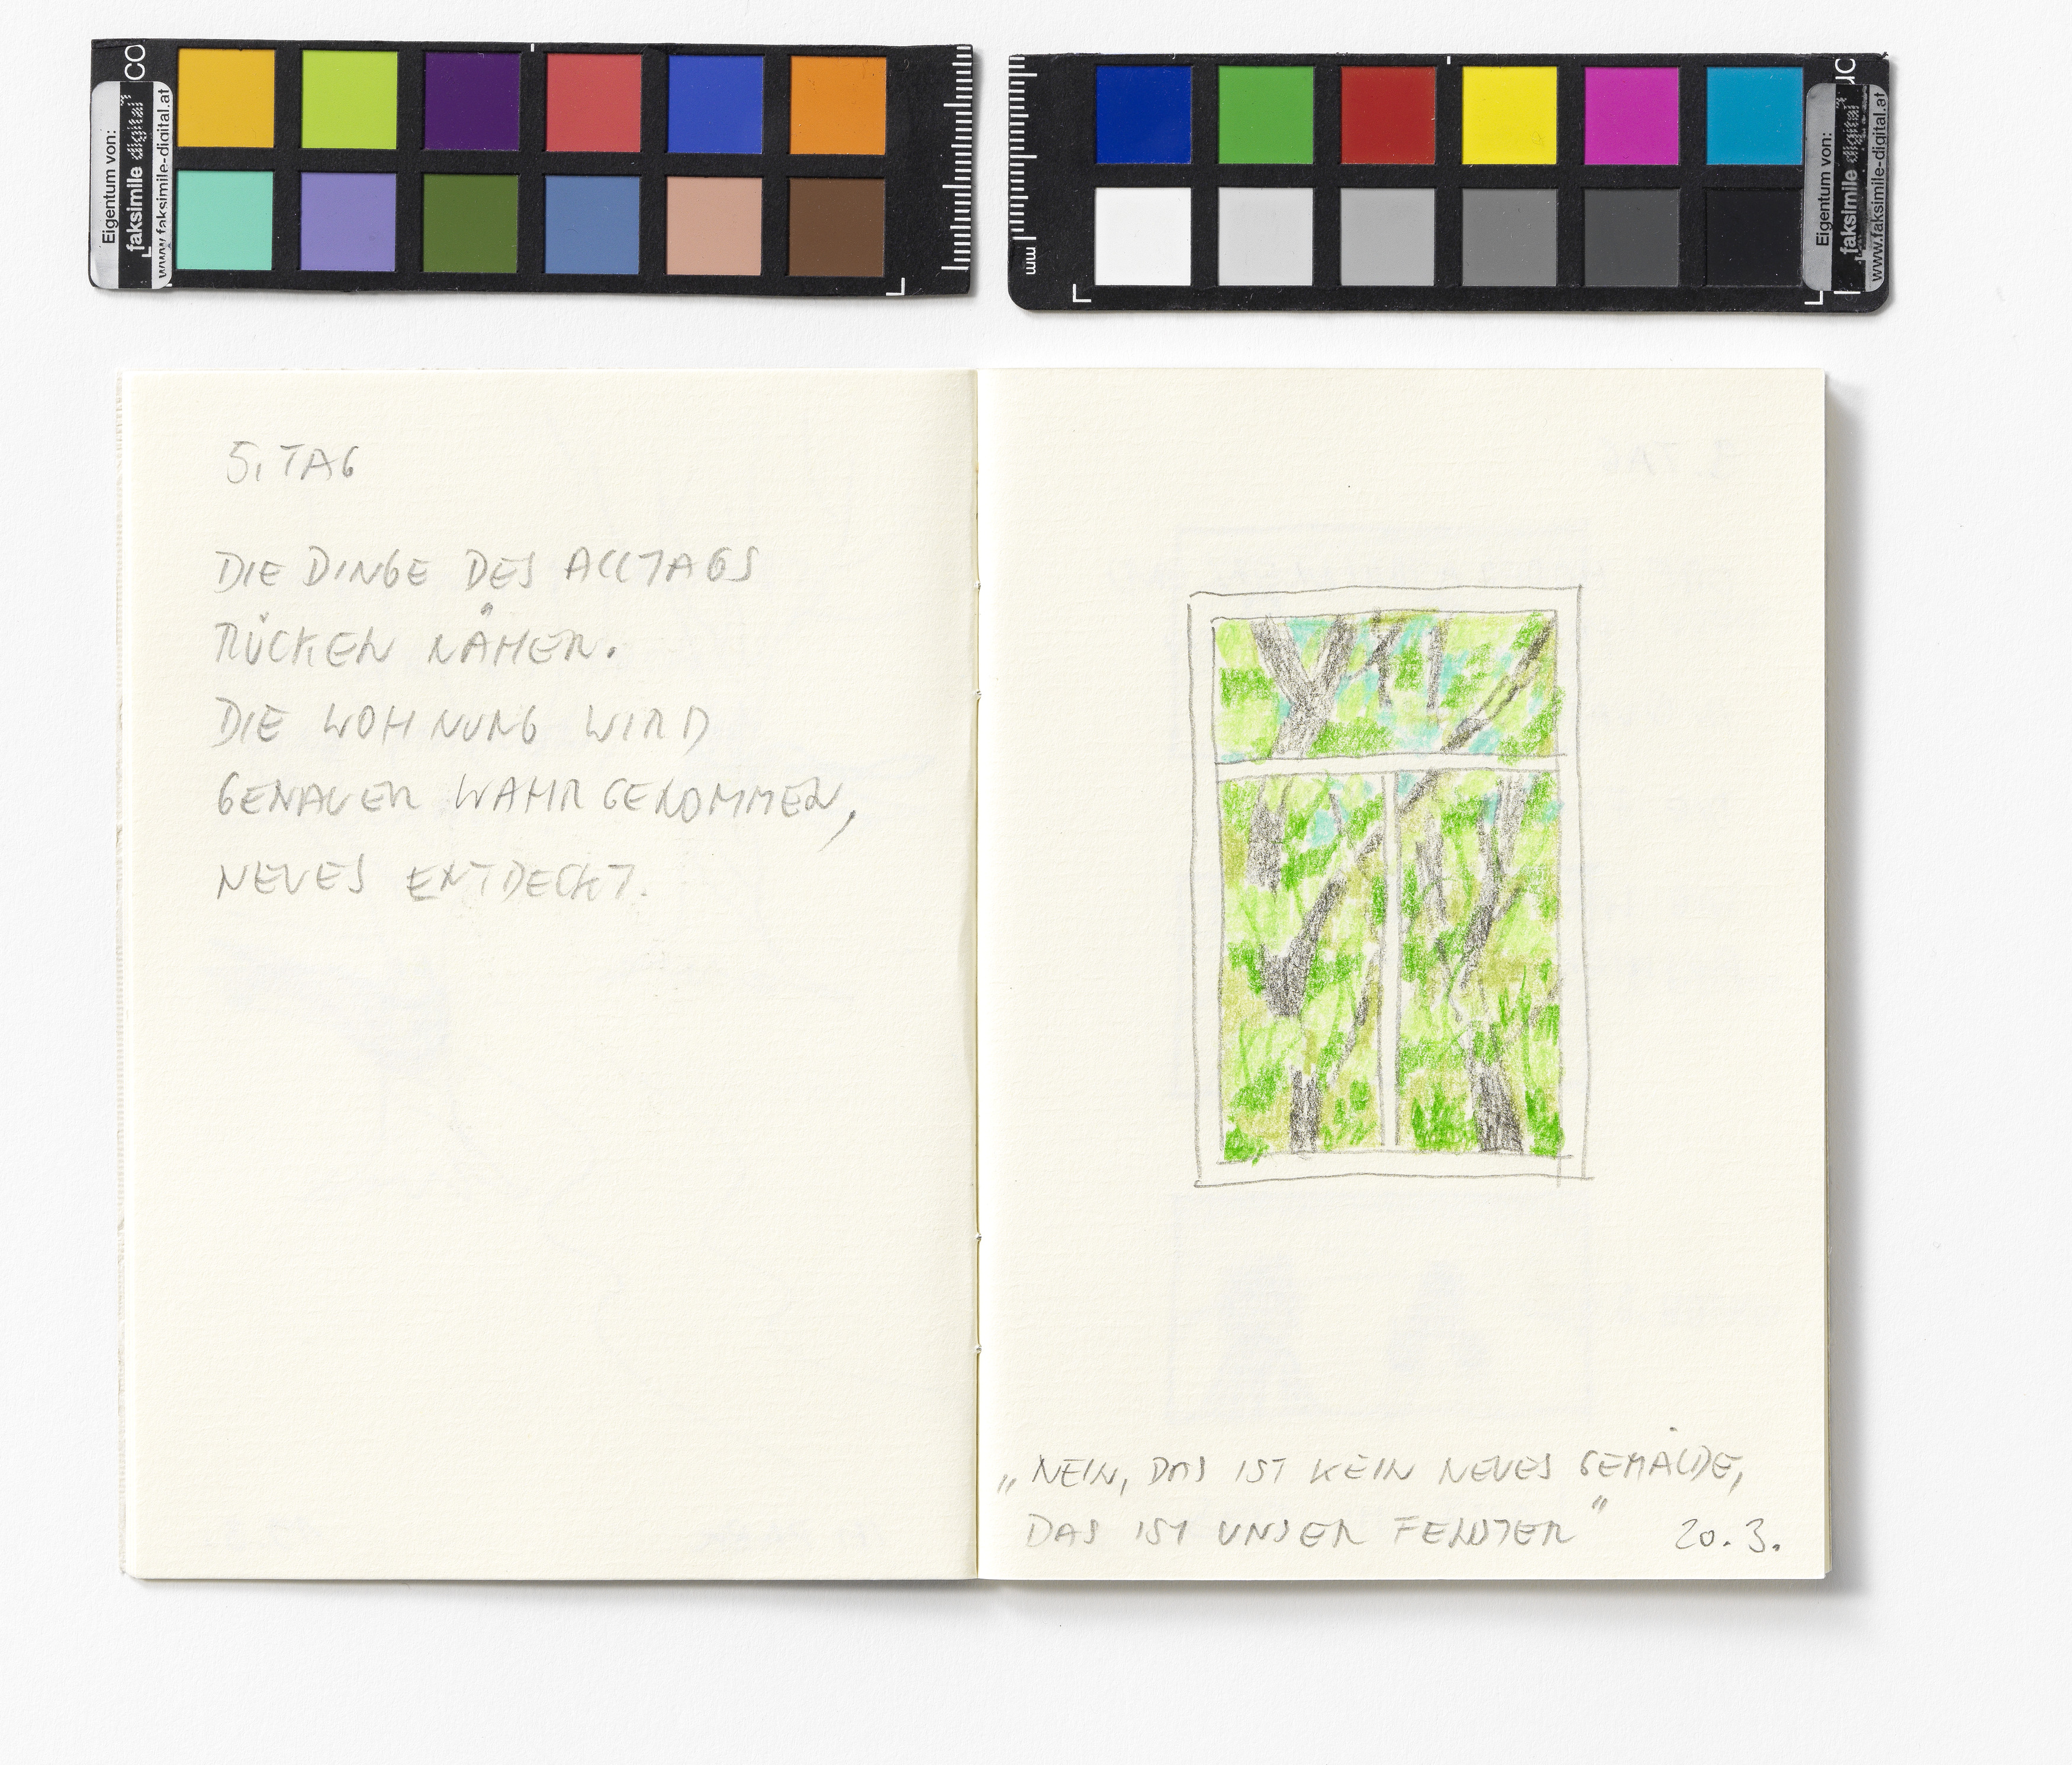 Eigentum von:
faksimile digital
www.faksimile-digital.at
mm
Eigentum von:
faksimile digital
www.faksimile-digital.at
5. TAG
DIE DINGE DES ALLTAGS
RÜCKEN NÄHER.
DIE WOHNUNG WIRD
GENAUER WAHRGENOMMEN,
NEUES ENTDECKT.
„NEIN, DAS IST KEIN NEUES GEMÄLDE,
DAS IST UNSER FENSTER" 20.3.